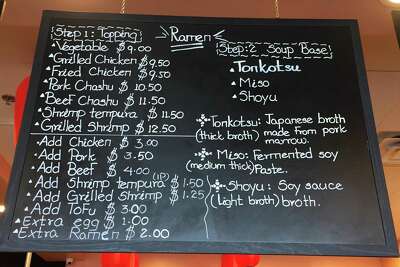 Ramen
Step 1: Topping
Vegetable $9.00
Grilled Chicken $9.50
Fried Chicken $9.50
Pork Chashu $10.50
Beef Chashu $11.50
Shrimp tempura $11.50
Grilled Shrimp $12.50
Add Chicken $3.00
Add Pork $3.50
Add Beef $4.00
Add Shrimp tempura (1P) $1.50
Add Grilled Shrimp $1.25
Add Tofu $3.00
Extra egg $1.00
Extra Ramen $2.00
Step:2 Soup Base
Tonkotsu
Miso
Shoyu
Tonkotsu: Japanese broth
(thick broth) made from pork
marrow.
Miso: Fermented soy
(medium thick) Paste.
Shoyu: Soy sauce
(Light broth) broth.